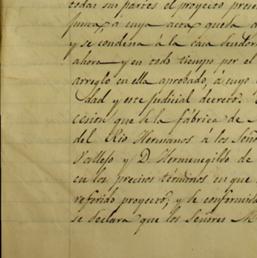 todas sus partes el proyecto
junta, á cuya acta queda
y se condena á la casa deudora
ahora y en todo tiempo por el
arreglo en ella aprobado, á cuyo
dad y este judicial decreto.
cesion que á la fábrica de
del Rio Hermanos á los Señor
Vallejo y D. Hermenegildo de
en los precisos términos en que
referido proyecto, y de conformida
se declara que los Señores M